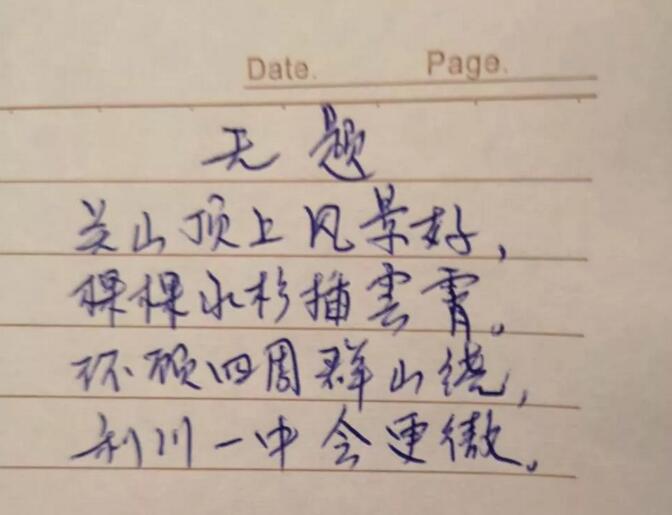 Date. Page.
无题
关山顶上风景好，
棵棵水杉插雲霄。
环顾四周群山绕，
利川一中会更